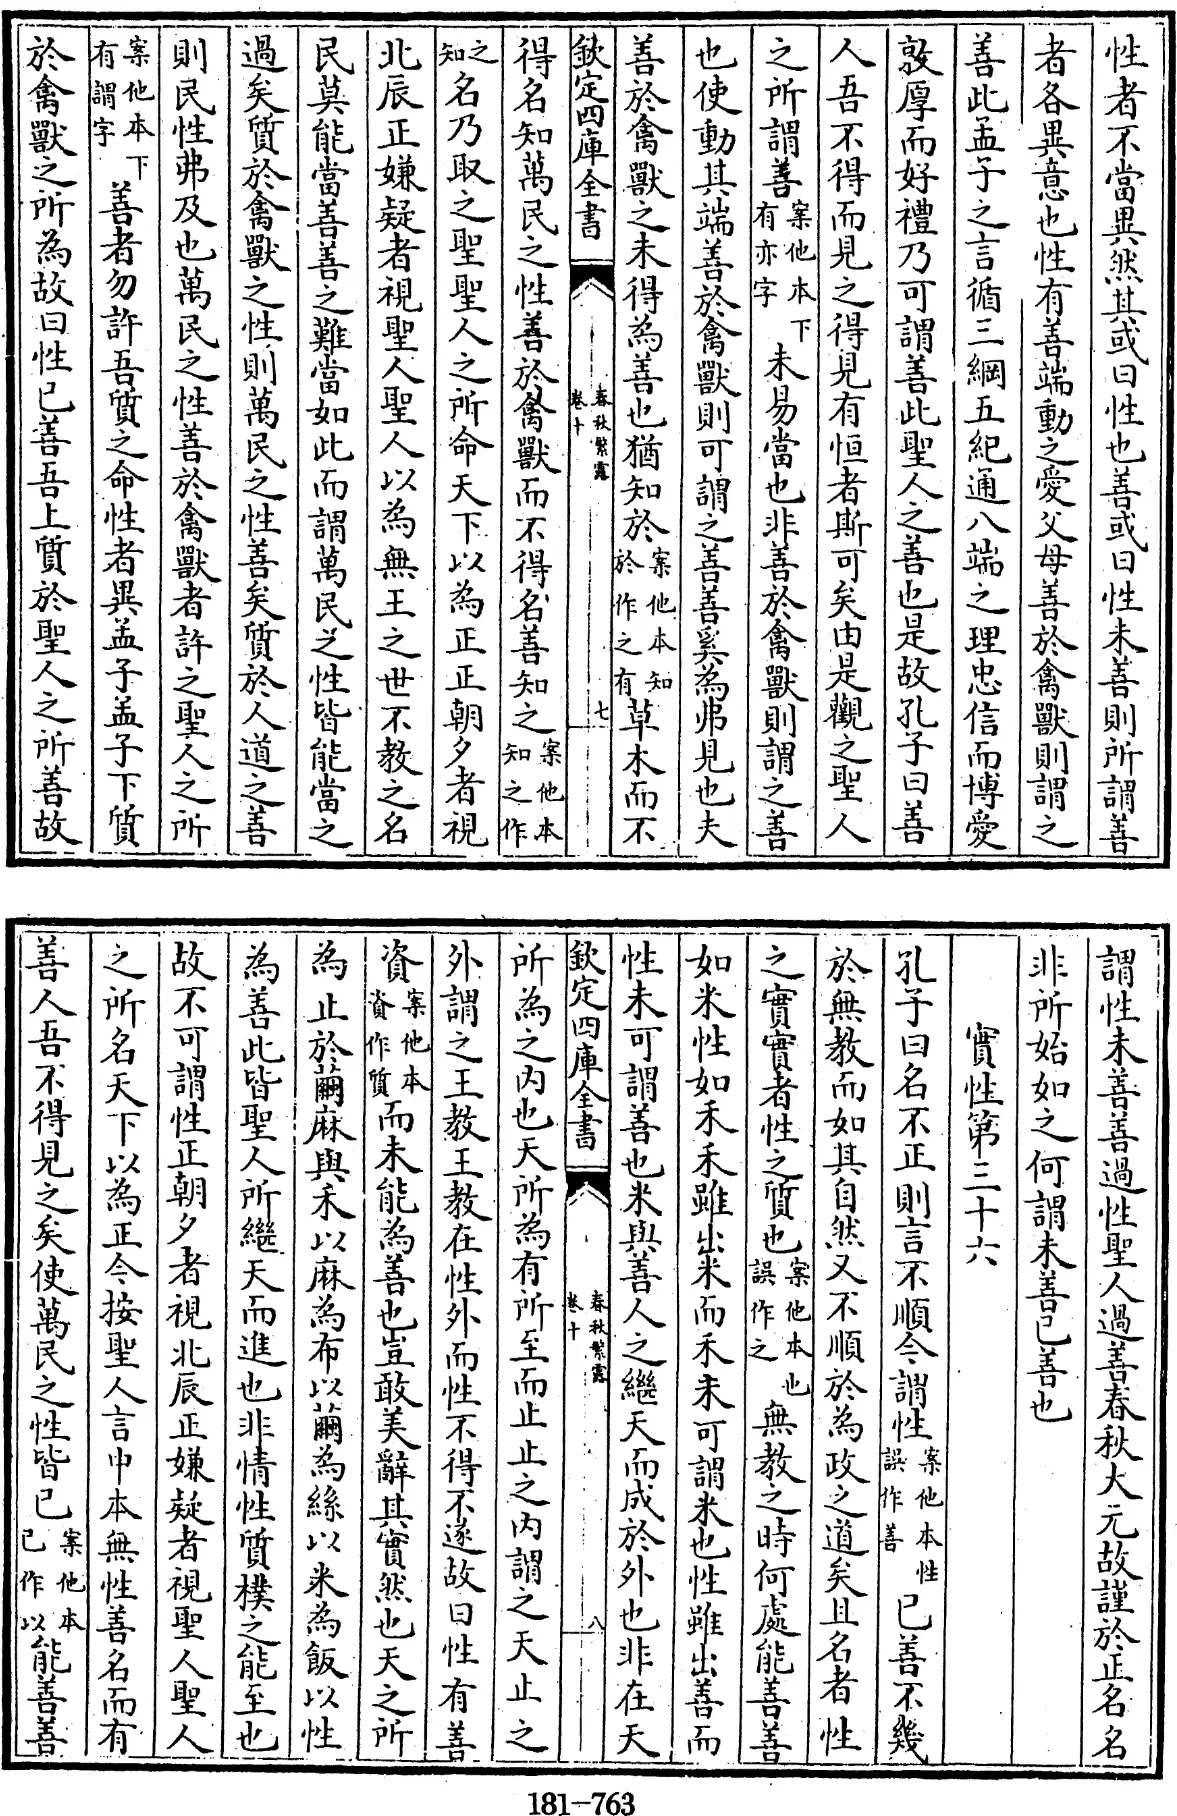 性者不當異然其或曰性也善或曰性未善則所謂善
者各異意也性有善端動之愛父母善於禽獸則謂之
善此孟子之言循三綱五紀通八端之理忠信而博愛
敦厚而好禮乃可謂善此聖人之善也是故孔子曰善
人吾不得而見之得見有恒者斯可矣由是觀之聖人
之所謂善案他本下有亦字未易當也非善於禽獸則謂之善
也使動其端善於禽獸則可謂之善善奚為弗見也夫
善於禽獸之未得為善也猶知於案他本知於作之有草木而不
欽定四庫全書 春秋繁露 卷十 七
得名知萬民之性善於禽獸而不得名善知之案他本知之作
知之名乃取之聖聖人之所命天下以為正正朝夕者視
北辰正嫌疑者視聖人聖人以為無王之世不教之名
民莫能當善善之難當如此而謂萬民之性皆能當之
過矣質於禽獸之性則萬民之性善矣質於人道之善
則民性弗及也萬民之性善於禽獸者許之聖人之所
案他本下有謂字善者勿許吾質之命性者異孟子孟子下質
於禽獸之所為故曰性已善吾上質於聖人之所善故
謂性未善善過性聖人過善春秋大元故謹於正名名
非所始如之何謂未善已善也
實性第三十六
孔子曰名不正則言不順今謂性案他本性誤作善已善不幾
於無教而如其自然又不順於為政之道矣且名者性
之實實者性之質也案他本也誤作之無教之時何處能善善
如米性如禾禾雖出米而禾未可謂米也性雖出善而
性未可謂善也米與善人之繼天而成於外也非在天
欽定四庫全書 春秋繁露 卷十 八
所為之內也天所為有所至而止止之內謂之天止之
外謂之王教王教在性外而性不得不遂故曰性有善
資案他本資作質而未能為善也豈敢美辭其實然也天之所
為止於繭麻與禾以麻為布以繭為絲以米為飯以性
為善此皆聖人所繼天而進也非情性質樸之能至也
故不可謂性正朝夕者視北辰正嫌疑者視聖人聖人
之所名天下以為正今按聖人言中本無性善名而有
善人吾不得見之矣使萬民之性皆已案他本已作以能善善
181-763